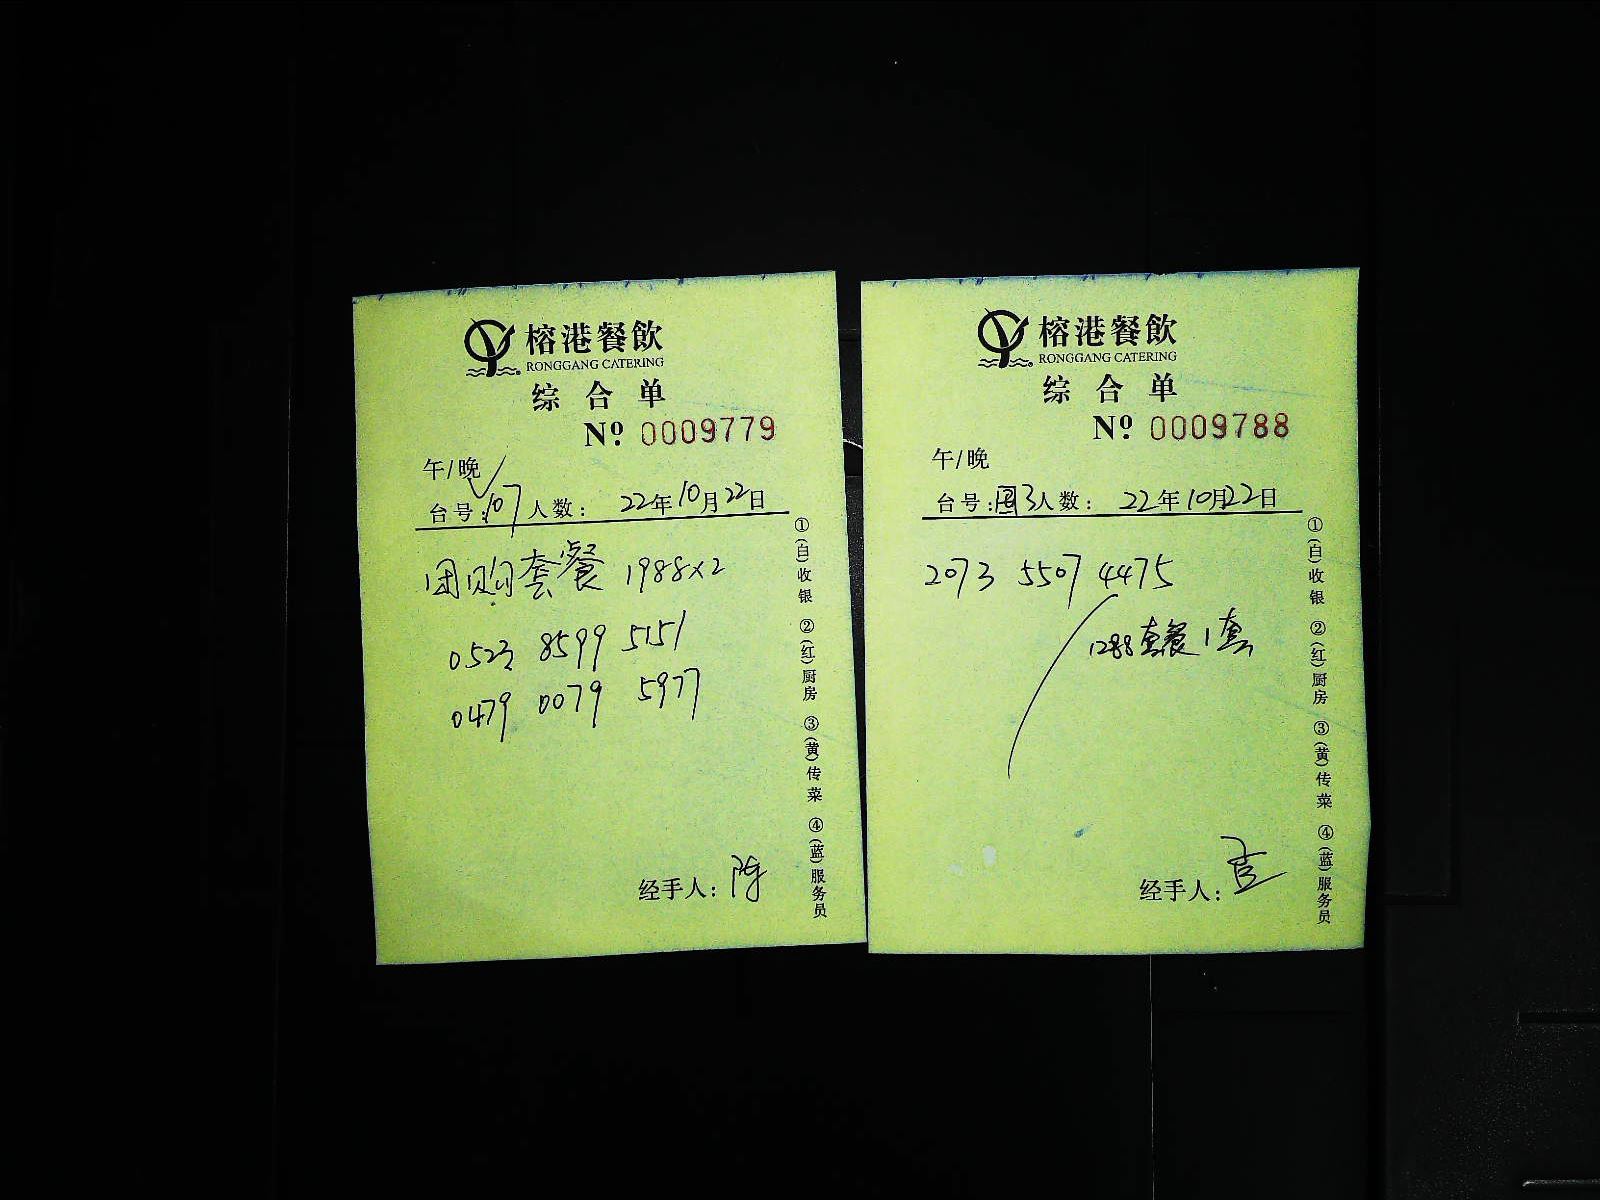 榕港餐飲
RONGGANG CATERING
综合单
Nº. 0009779
午/晚
台号: 107 人数: 22年10月22日
团购套餐 1988x2
0523 8599 5151
0479 0079 5977
经手人: 陈
①(白)收银 ②(红)厨房 ③(黄)传菜 ④(蓝)服务员
榕港餐飲
RONGGANG CATERING
综合单
Nº. 0009788
午/晚
台号: 3 人数: 22年10月22日
2073 5507 4475
1288套餐1套
经手人:
①(白)收银 ②(红)厨房 ③(黄)传菜 ④(蓝)服务员